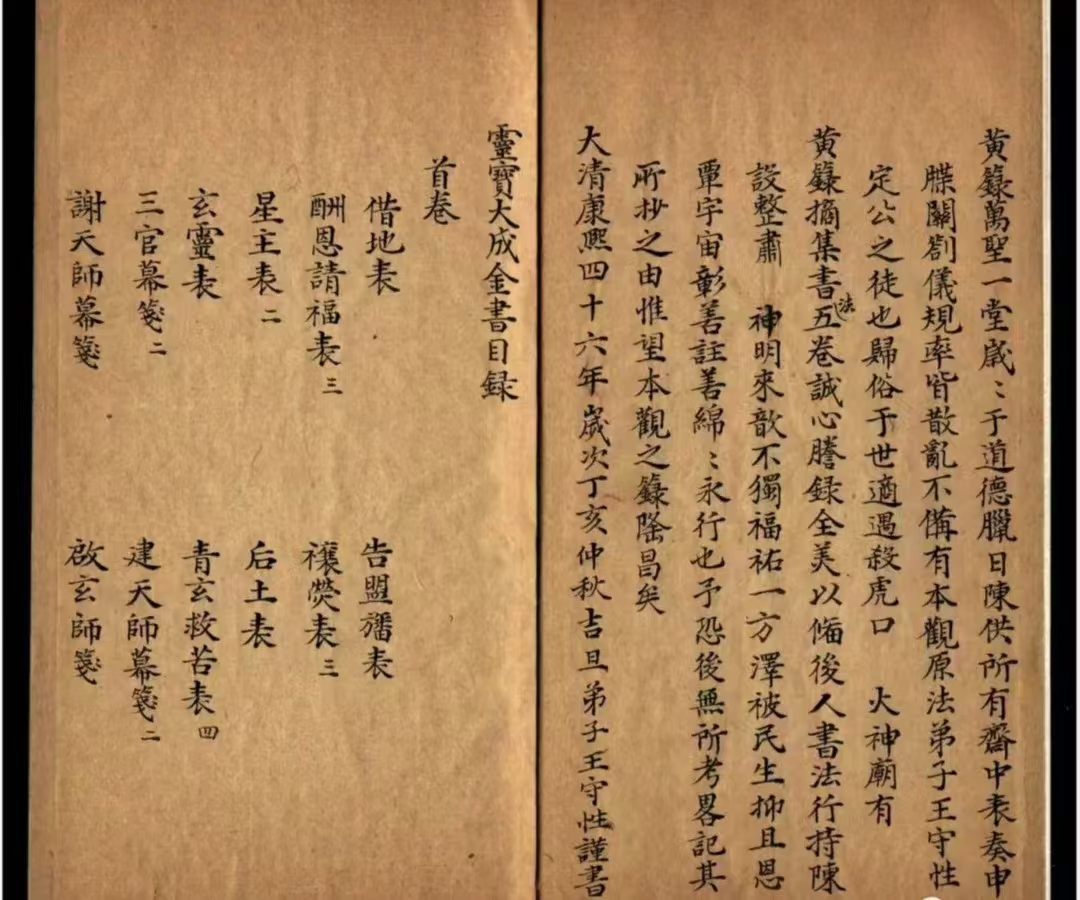 黃籙萬聖一堂歲〻于道德臘日陳供所有齋中表奏申
牒關劄儀規率皆散亂不備有本觀原法弟子王守性
定公之徒也歸俗于世適遇殺虎口 火神廟有
黃籙摘集書法五卷誠心謄録全美以偹後人書法行持陳
設整肅 神明來歆不獨福祐一方澤被民生抑且恩
覃宇宙彰善註善綿〻永行也予恐後無所考畧記其
所抄之由惟望本觀之籙隆昌矣
大清康熙四十六年歲次丁亥仲秋吉旦弟子王守性謹書
靈寶大成金書目録
首卷
借地表 告盟旛表
酬恩請福表三 禳熒表三
星主表二 后土表
玄靈表 青玄救苦表四
三官幕箋二 建天師幕箋二
謝天師幕箋 啟玄師箋